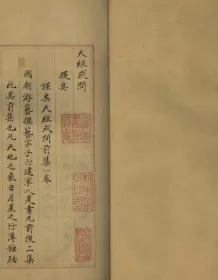 天經或問
提要
謹案天經或問前集一卷
國朝游藝撰藝字子六建寧人是書凡前後二集
此其前集也凡天地之象日月星之行薄蝕朒